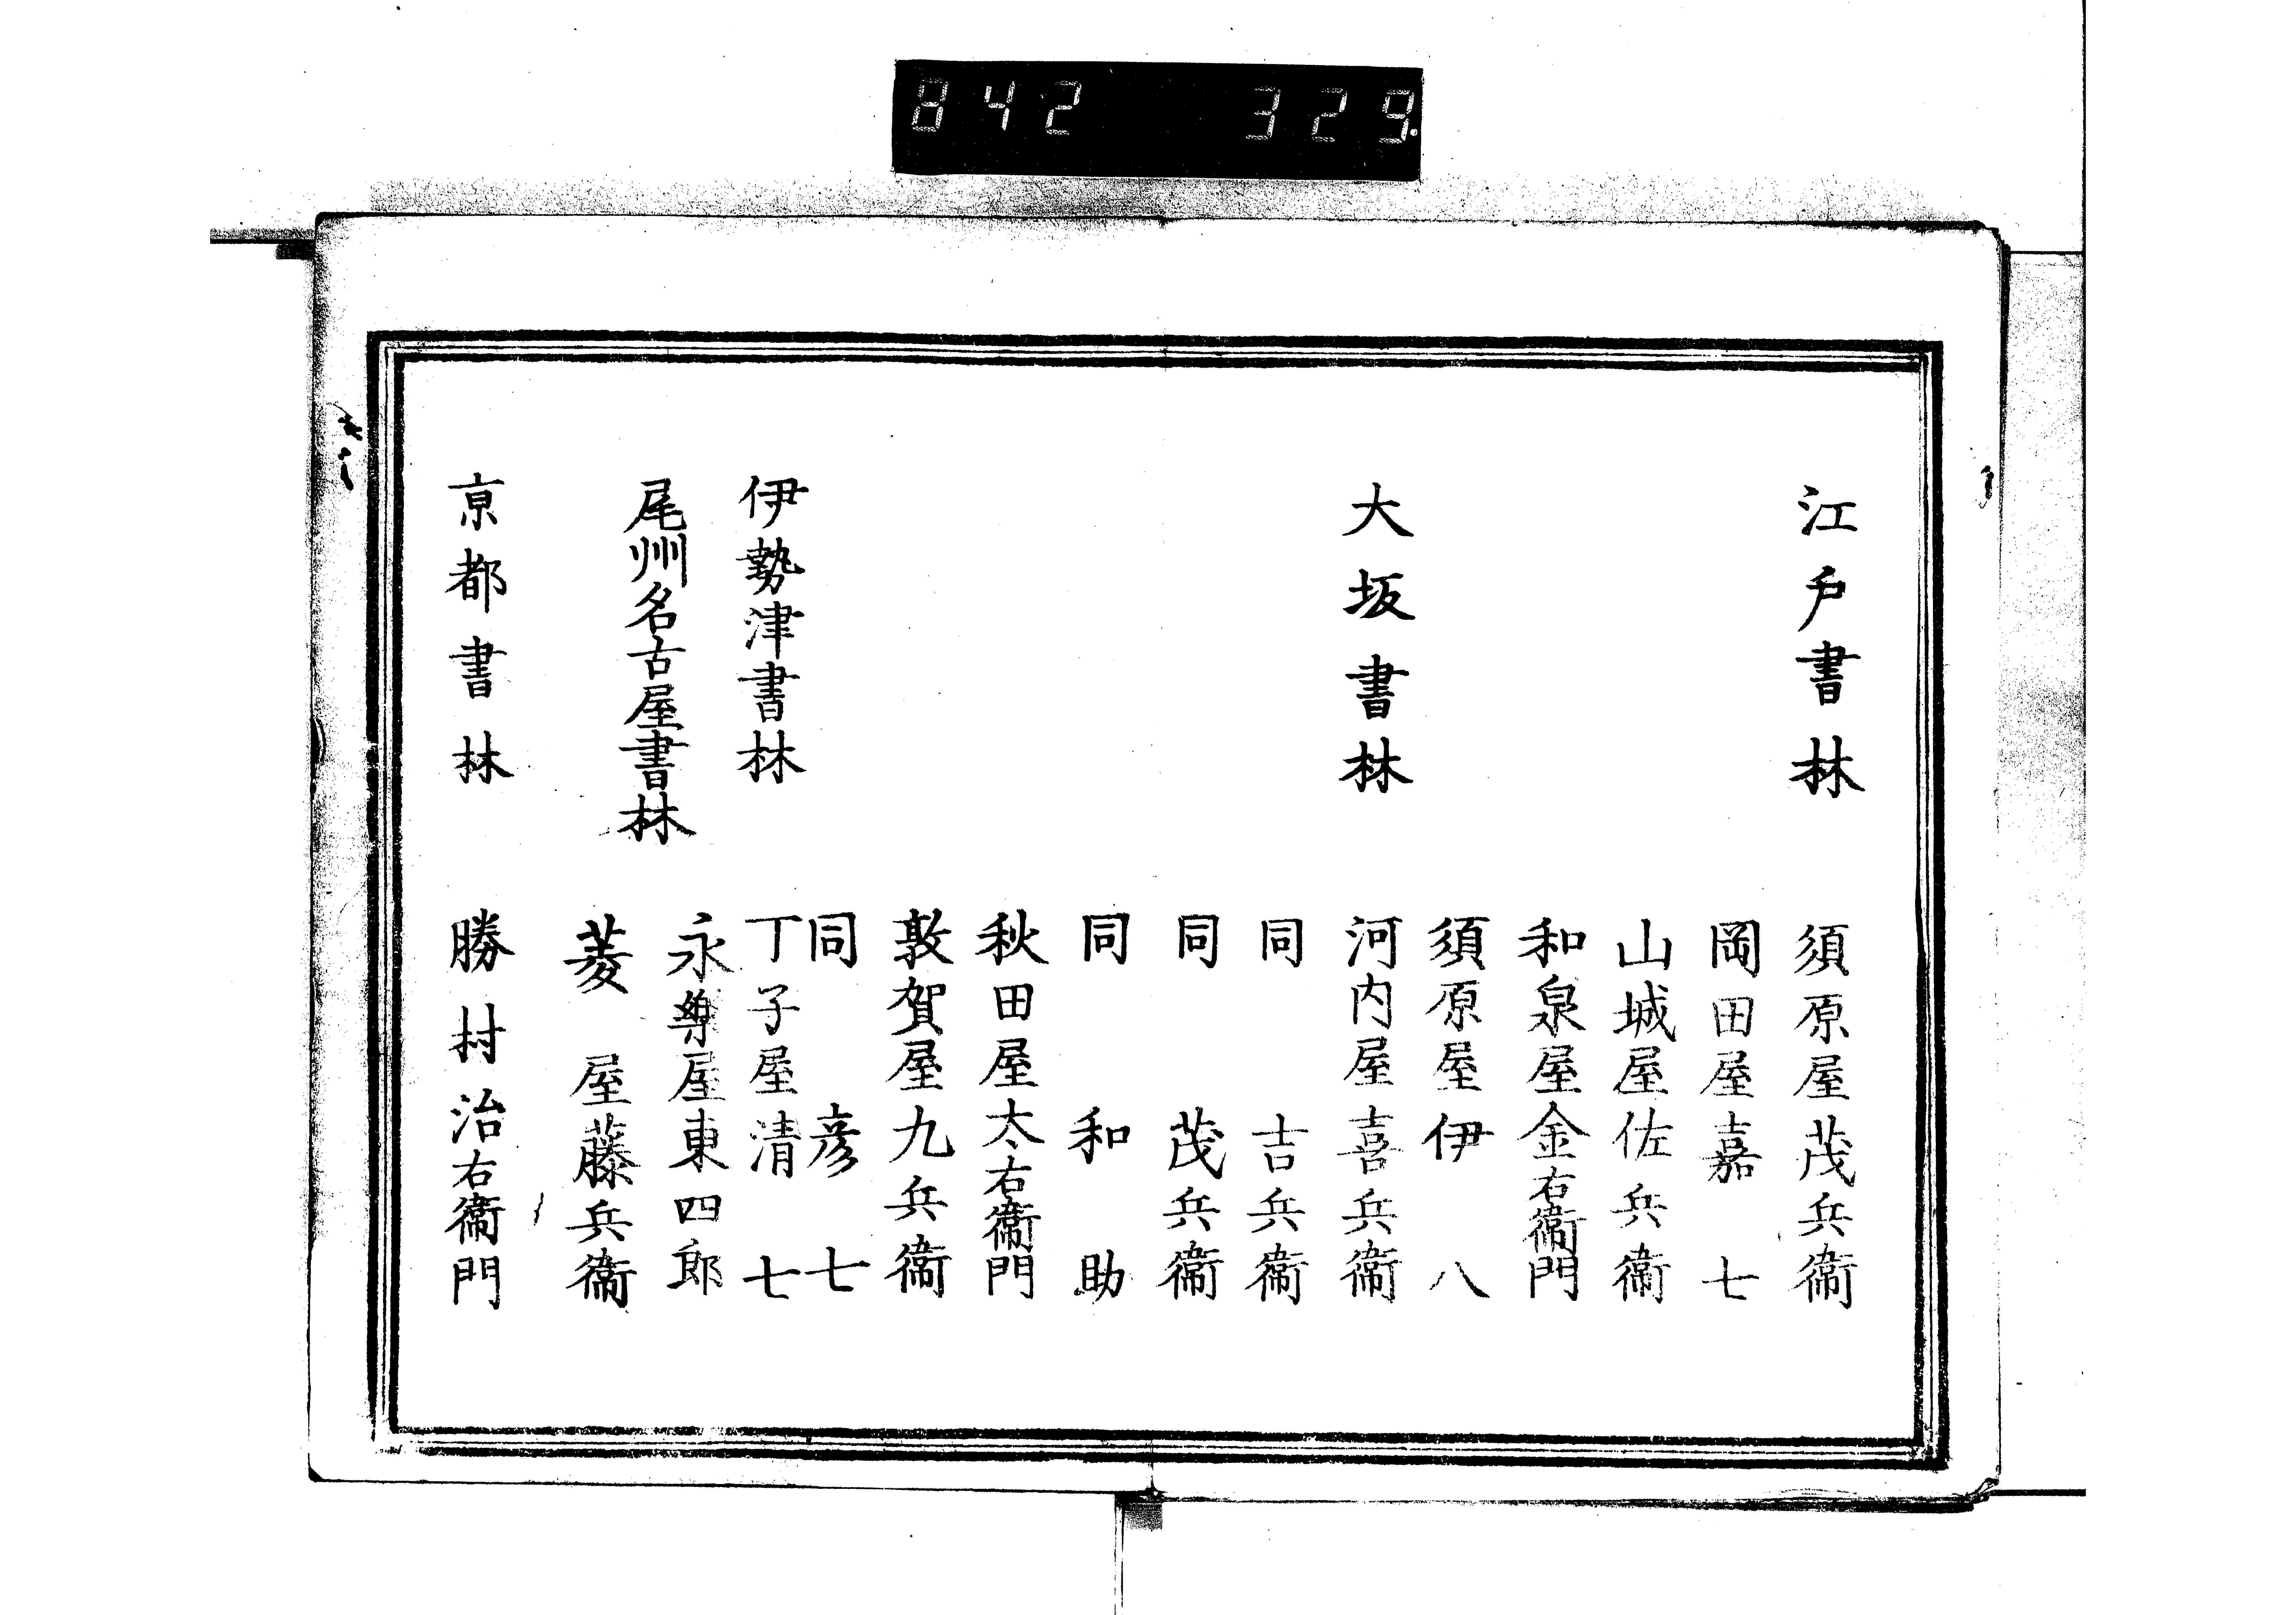 842 329.
江戸書林 須原屋茂兵衞
岡田屋嘉七
山城屋佐兵衞
和泉屋金右衞門
須原屋伊八
大坂書林 河内屋喜兵衞
同 吉兵衞
同 茂兵衞
同 和助
秋田屋太右衞門
敦賀屋九兵衞
同 彦七
伊勢津書林 丁子屋清七
尾州名古屋書林 永樂屋東四郎
菱屋藤兵衞
京都書林 勝村治右衞門